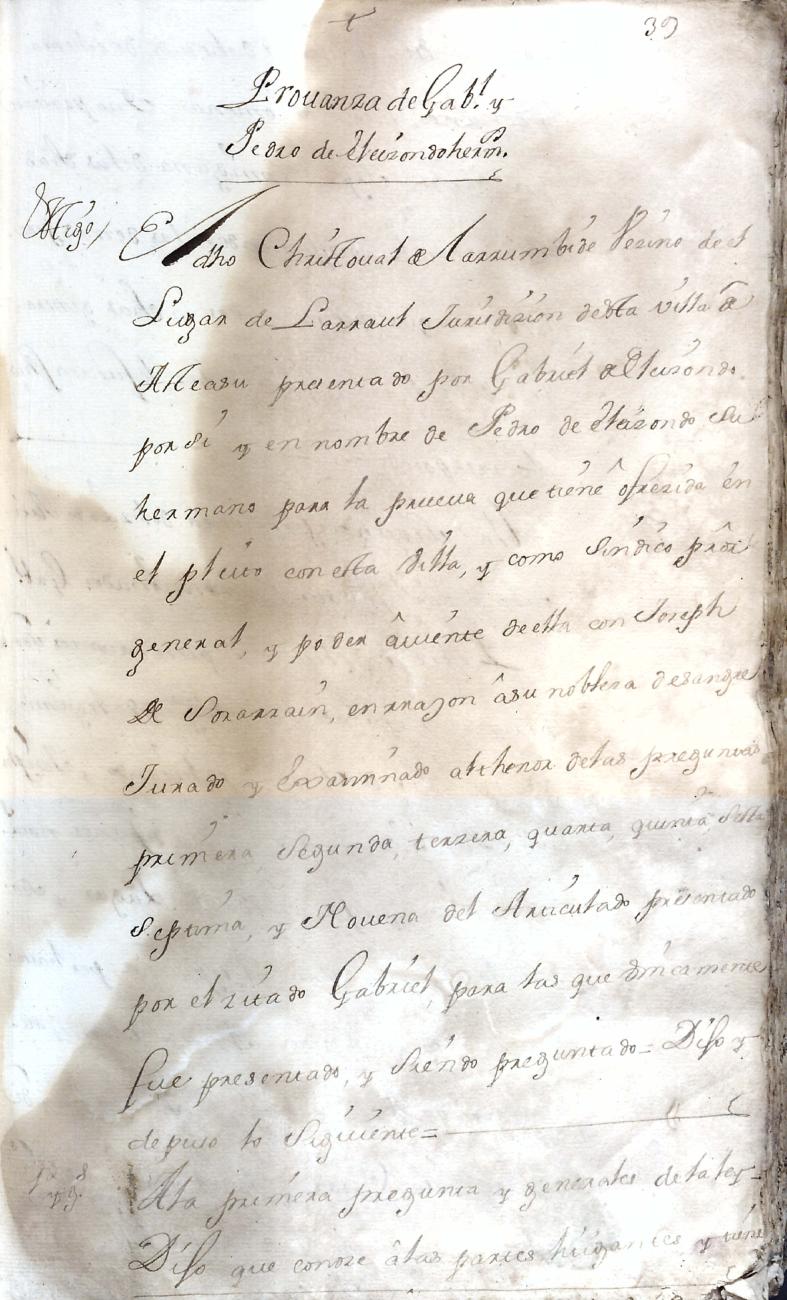 39
Prouanza de Gab.l y
Pedro de Eleizondo herm.s
Ttigo / El dho Christoual de Larrumbide Vezino de el
Lugar de Larraul Jurisdizion desta villa de
Asteasu presentado por Gabriel de Eleizondo
por si y en nombre de Pedro de Eleizondo su
hermano para la prueua que tiene ofrezida en
el pleito con esta Villa, y como Sindico pror
general, y poder auiente de ella con Joseph
de Sorarrain, en rrazon a su nobleza de sangre
Jurado y Examinado al thenor de las preguntas
primera, Segunda, terzera, quarta, quinta, Sesta
Septima, y Nouena del Articulado presentado
por el zitado Gabriel, para las que vnicamente
fue presentado, y Siendo preguntado = Dijo y
depuso lo Siguiente =
A la primera pregunta y generales de la ley
Dijo que conoze a las partes litigantes y tiene